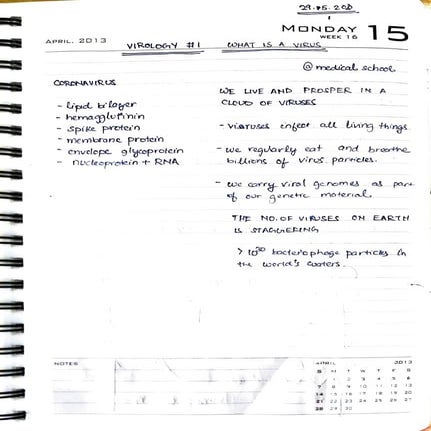 29.05.20
MONDAY 15
WEEK 16
APRIL, 2013
VIROLOGY #1 WHAT IS A VIRUS
@medical school
CORONAVIRUS
- lipid bilayer
- hemagglutinin
- spike protein
- membrane protein
- envelope glycoprotein
- nucleoprotein + RNA
WE LIVE AND PROSPER IN A
CLOUD OF VIRUSES
- viruses infect all living things
- we regularly eat and breathe
billions of virus particles.
- we carry viral genomes as part
of our genetic material.
THE NO. OF VIRUSES ON EARTH
IS STAGGERING
> 10³⁰ bacteriophage particles in
the world's waters.
NOTES
APRIL 2013
S M T W T F S
1 2 3 4 5 6
7 8 9 10 11 12 13
14 15 16 17 18 19 20
21 22 23 24 25 26 27
28 29 30